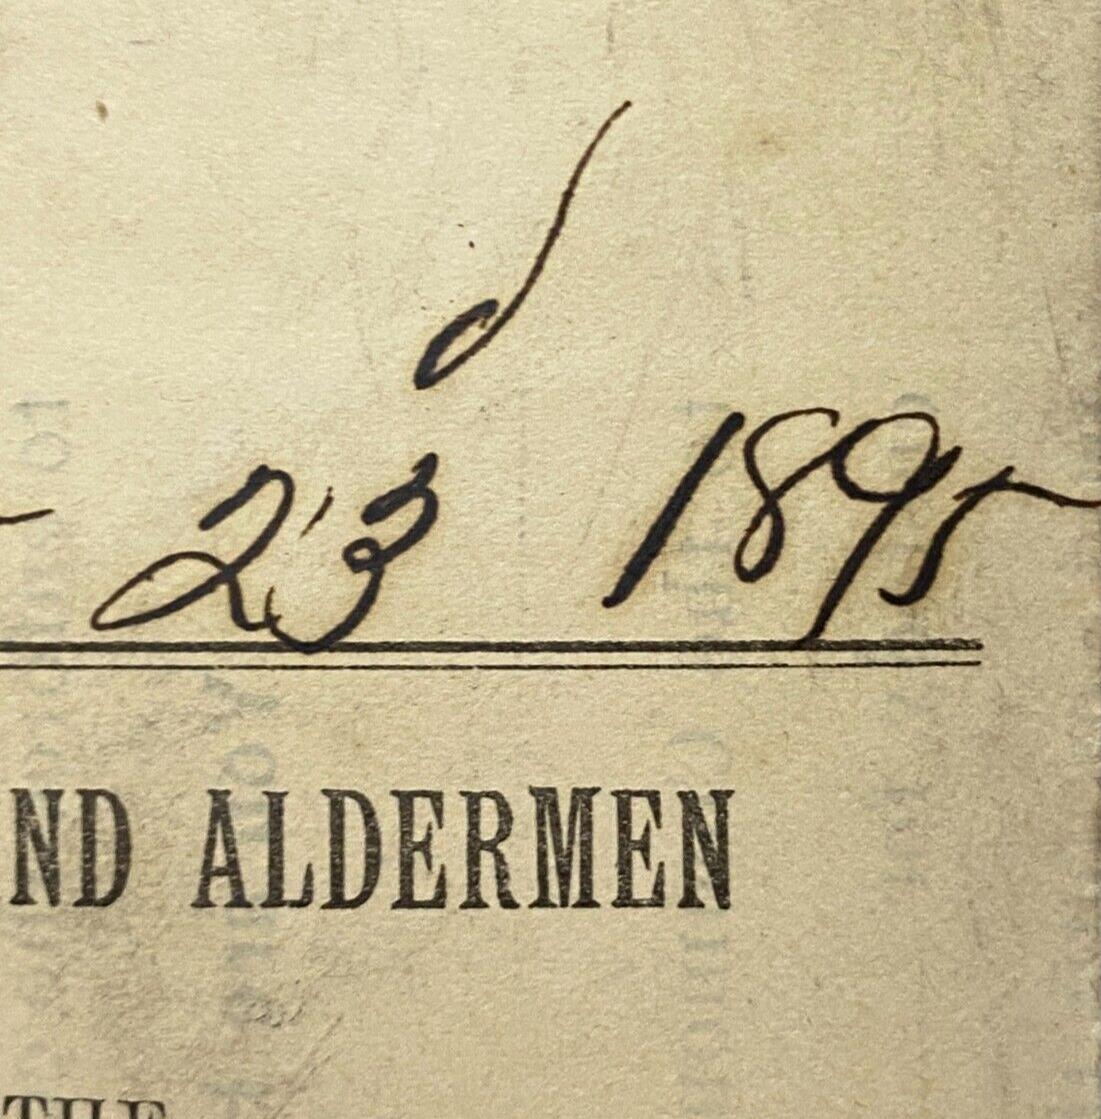 d
23 1895
ND ALDERMEN
THE